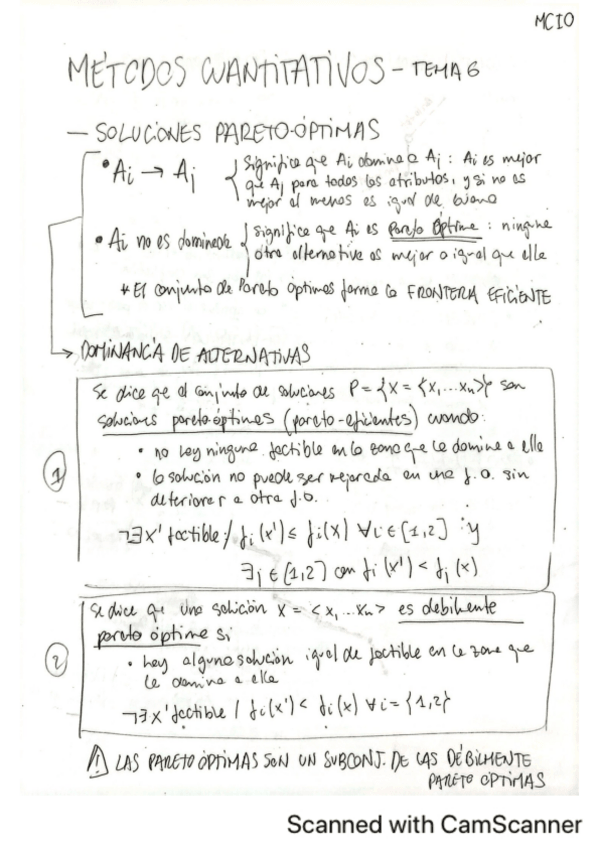 MCIO
MÉTODOS CUANTITATIVOS - TEMA 6
— SOLUCIONES PARETO-ÓPTIMAS
• Ai → Aj { Significa que Ai domina a Aj : Ai es mejor
que Aj para todos los atributos, y si no es
mejor al menos es igual de bueno
• Ai no es dominada { significa que Ai es Pareto Óptima : ninguna
otra alternativa es mejor o igual que ella
* El conjunto de Pareto óptimas forma la FRONTERA EFICIENTE
→ DOMINANCIA DE ALTERNATIVAS
Se dice que el conjunto de soluciones P = {X = {x1...xn}} son
soluciones pareto óptimas (pareto-eficientes) cuando:
• no hay ninguna factible en la zona que le domine a ella
① • la solución no puede ser mejorada en una f.o. sin
deteriorar a otra f.o.
¬∃x' factible / fi(x') ≤ fi(x) ∀i ∈ [1,2] : y
∃j ∈ [1,2] con fi(x') < fj(x)
Se dice que una solición X = <x1...xn> es debilmente
pareto óptima si
② • hay alguna solución igual de factible en la zona que
le domina a ella
¬∃x' factible / fi(x') < fi(x) ∀i = {1,2}
⚠ LAS PARETO ÓPTIMAS SON UN SUBCONJ. DE LAS DÉBILMENTE
PARETO OPTIMAS
Scanned with CamScanner